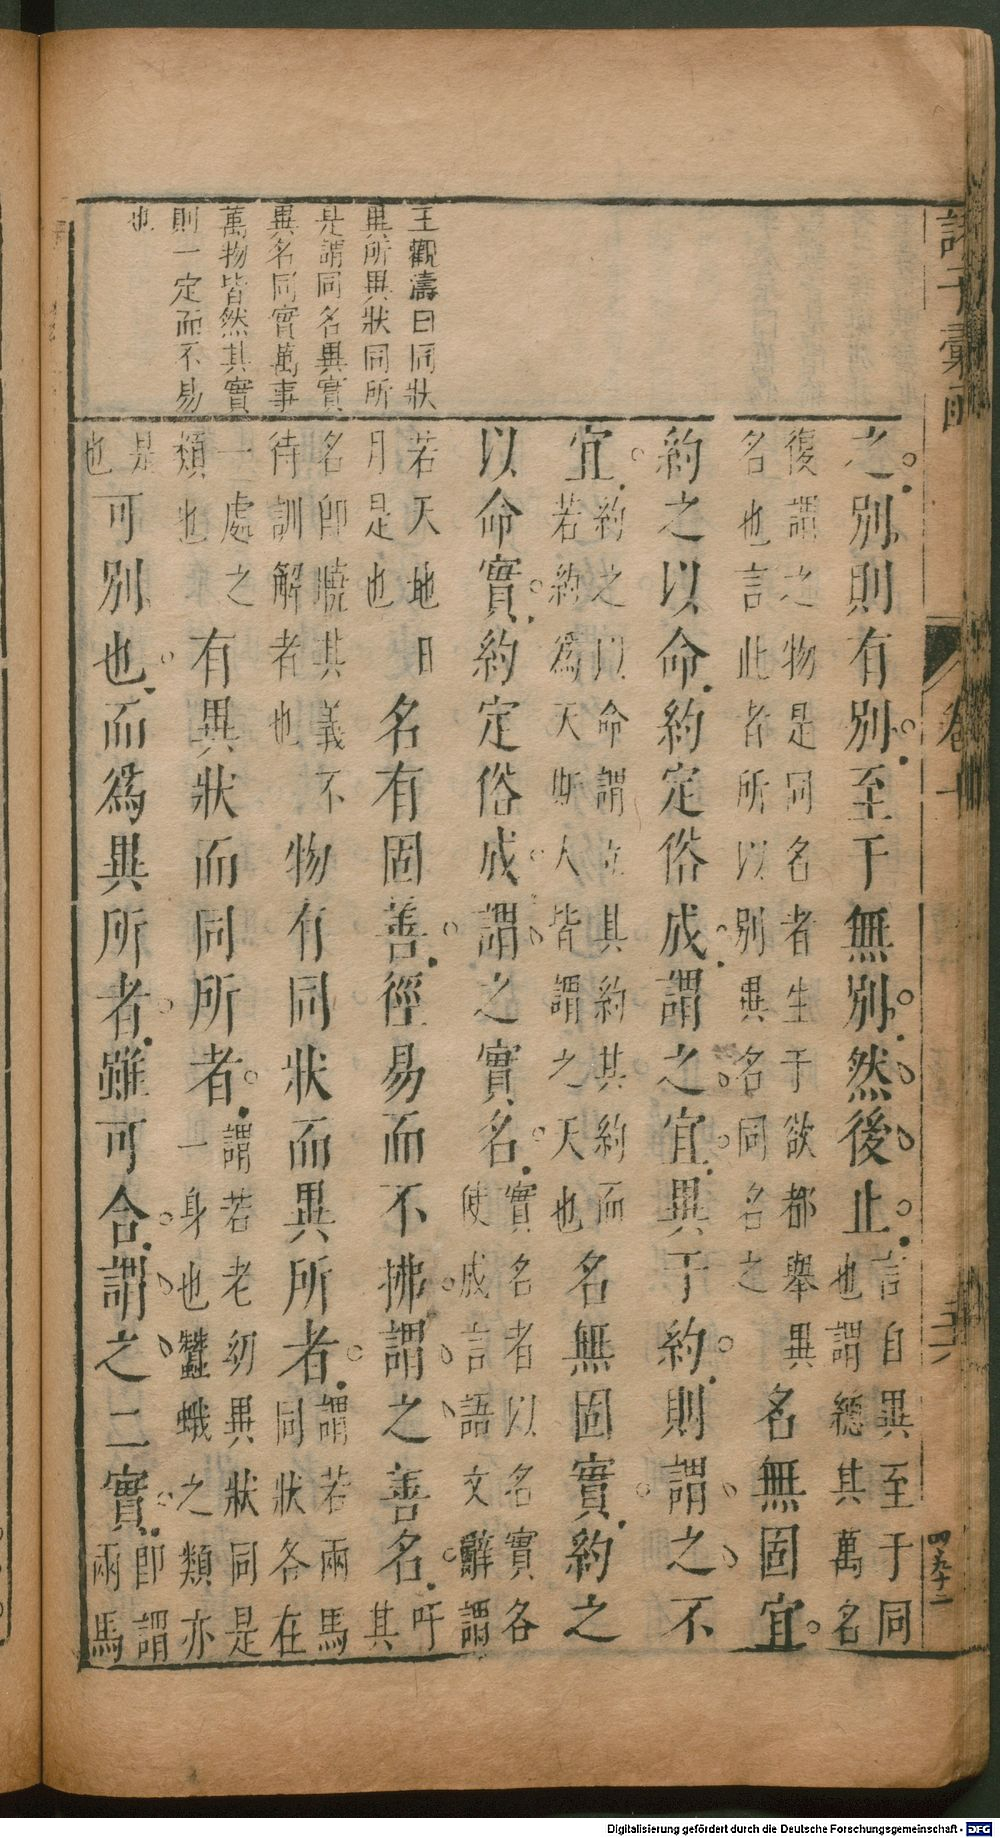 諸子彙函
卷十
之別則有別至于無別然後止言自異至于同也謂總其萬名
復謂之物是同名者生于欲都舉異名也言此者所以別異名同名之名無固宜
約之以命約定俗成謂之宜異于約則謂之不
宜約之以命謂立其約其約而若約爲天斯人皆謂之天也名無固實約之
以命實約定俗成謂之實名實名者以名實各使成言語文辭謂
若天地日月是也名有固善徑易而不拂謂之善名吁其
名卽曉其義不待訓解者也物有同狀而異所者謂若兩馬同狀各在
一處之類也有異狀而同所者謂若老幼異狀同是一身也蠶蛾之類亦
是也可別也而爲異所者雖可合謂之二實卽謂兩馬
王觀濤曰同狀
異所異狀同所
是謂同名異實
異名同實萬事
萬物皆然其實
則一定而不易
也
Digitalisierung gefördert durch die Deutsche Forschungsgemeinschaft - DFG